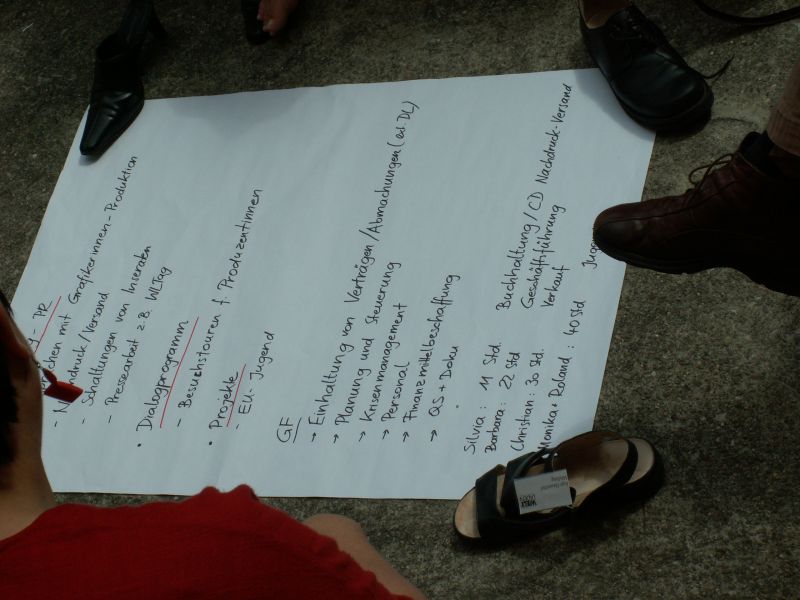 - PR
mit Grafikerinnen - Produktion
- Nachdruck/Versand
- Schaltungen von Inseraten
- Pressearbeit z.B. WLTag
• Dialogprogramm
- Besuchstouren f. Produzentinnen
• Projekte
- EU-Jugend
GF
→ Einhaltung von Verträgen/Abmachungen (ed. DL)
→ Planung und Steuerung
→ Krisenmanagement
→ Personal
→ Finanzmittelbeschaffung
→ QS + Doku
Silvia: 11 Std. Buchhaltung/CD Nachdruck-Versand
Barbara: 22 Std Geschäftsführung
Christian: 30 Std. Verkauf
Monika + Roland: 40 Std